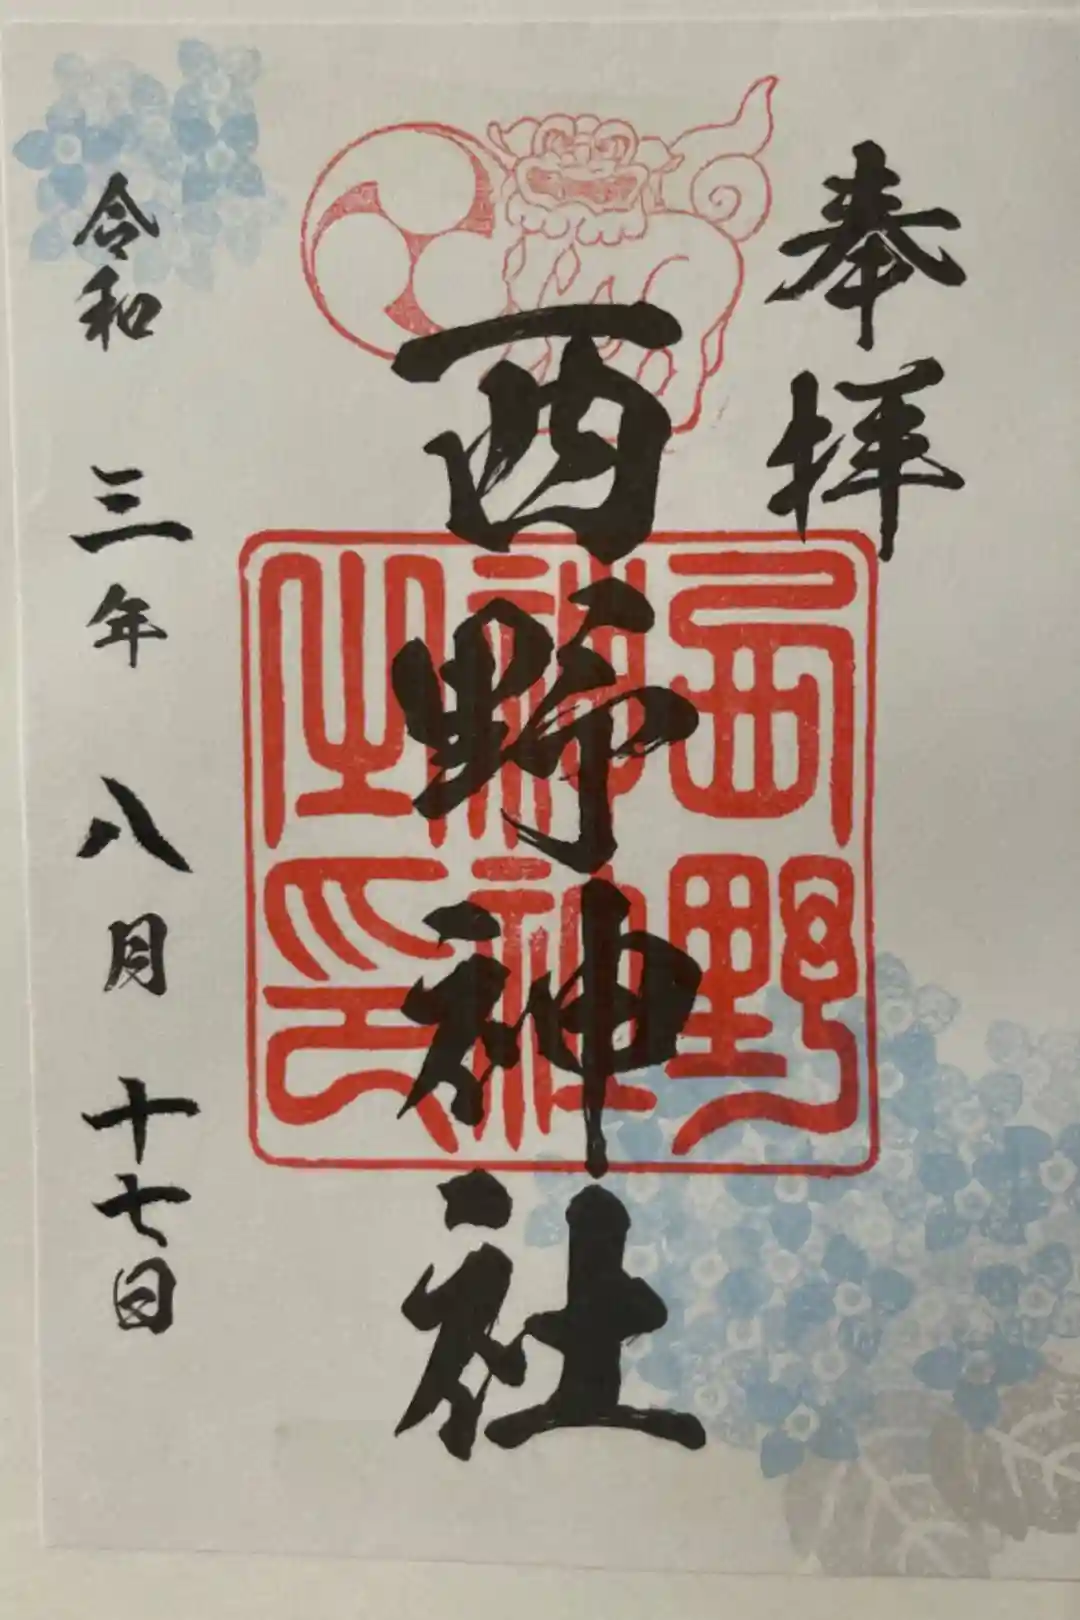 奉拝
西野神社
西野神社之印
令和三年八月十七日